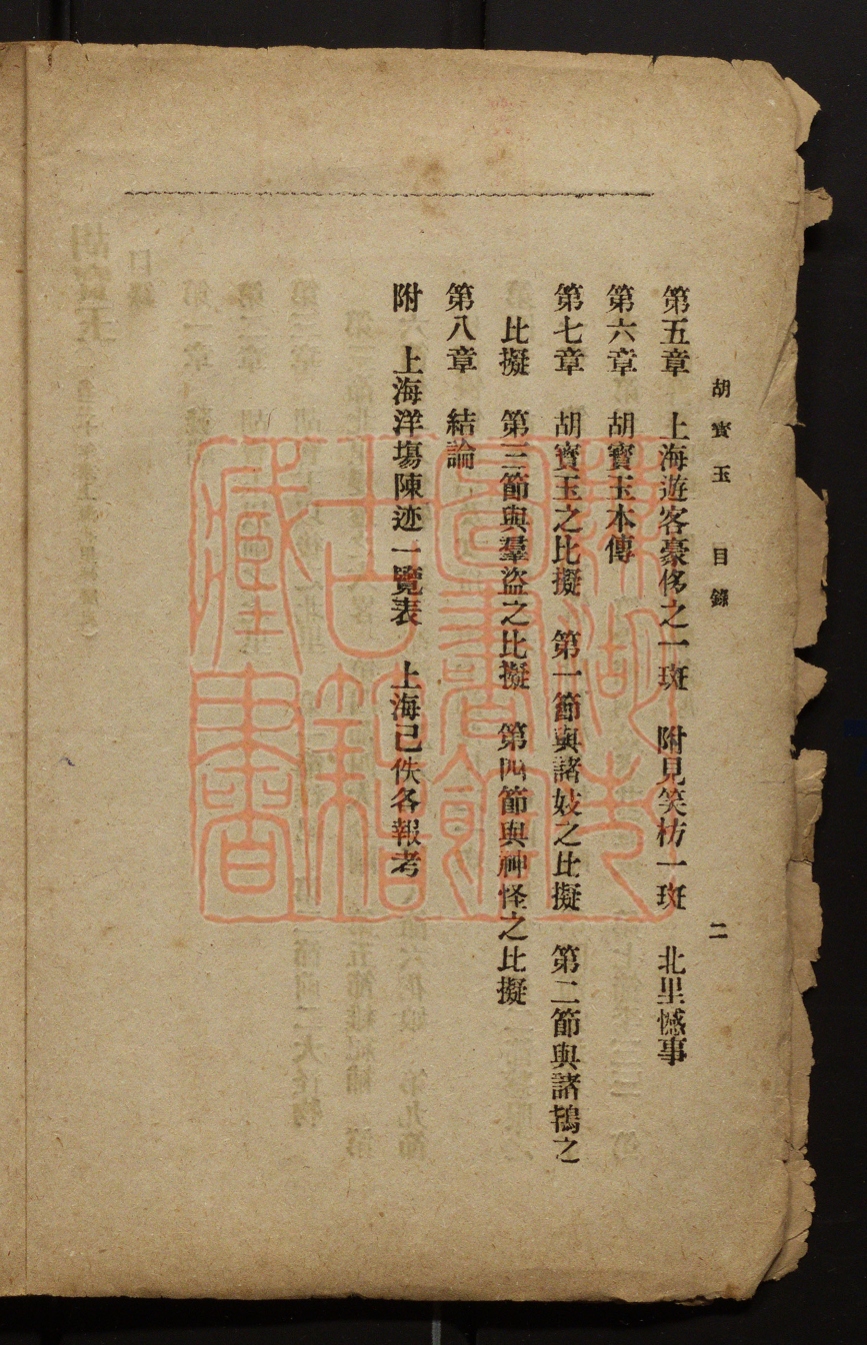 胡寶玉 目錄 二
第五章 上海遊客豪侈之一斑 附見笑枋一斑 北里憾事
第六章 胡寶玉本傳
第七章 胡寶玉之比擬 第一節與諸妓之比擬 第二節與諸鴇之
比擬 第三節與羣盜之比擬 第四節與神怪之比擬
第八章 結論
附 上海洋塲陳迹一覽表 上海已佚各報考